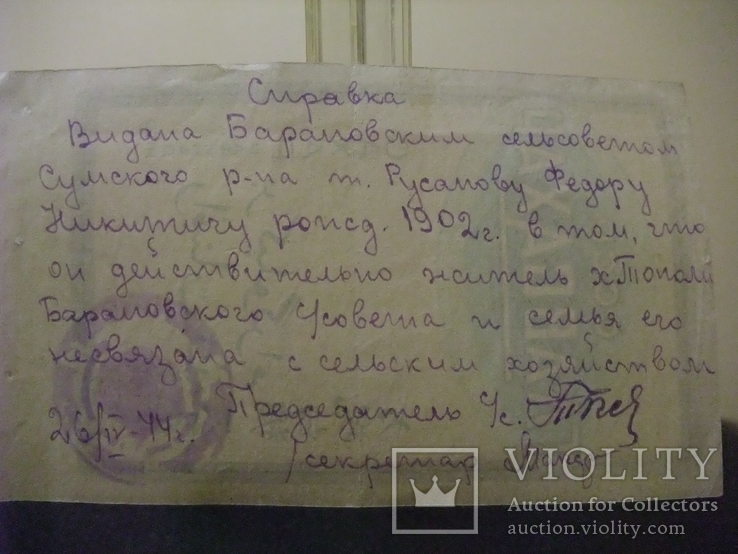 Справка
Видана Барановским сельсоветом
Сумского р-на т. Русанову Федору
Никитичу рожд. 1902г. в том, что
он действительно житель х Тополи
Барановского С/совета и семья его
несвязана с сельским хозяйством
Председатель с/с.
26/IV-44г.
секретар
VIOLITY
Auction for Collectors
auction.violity.com